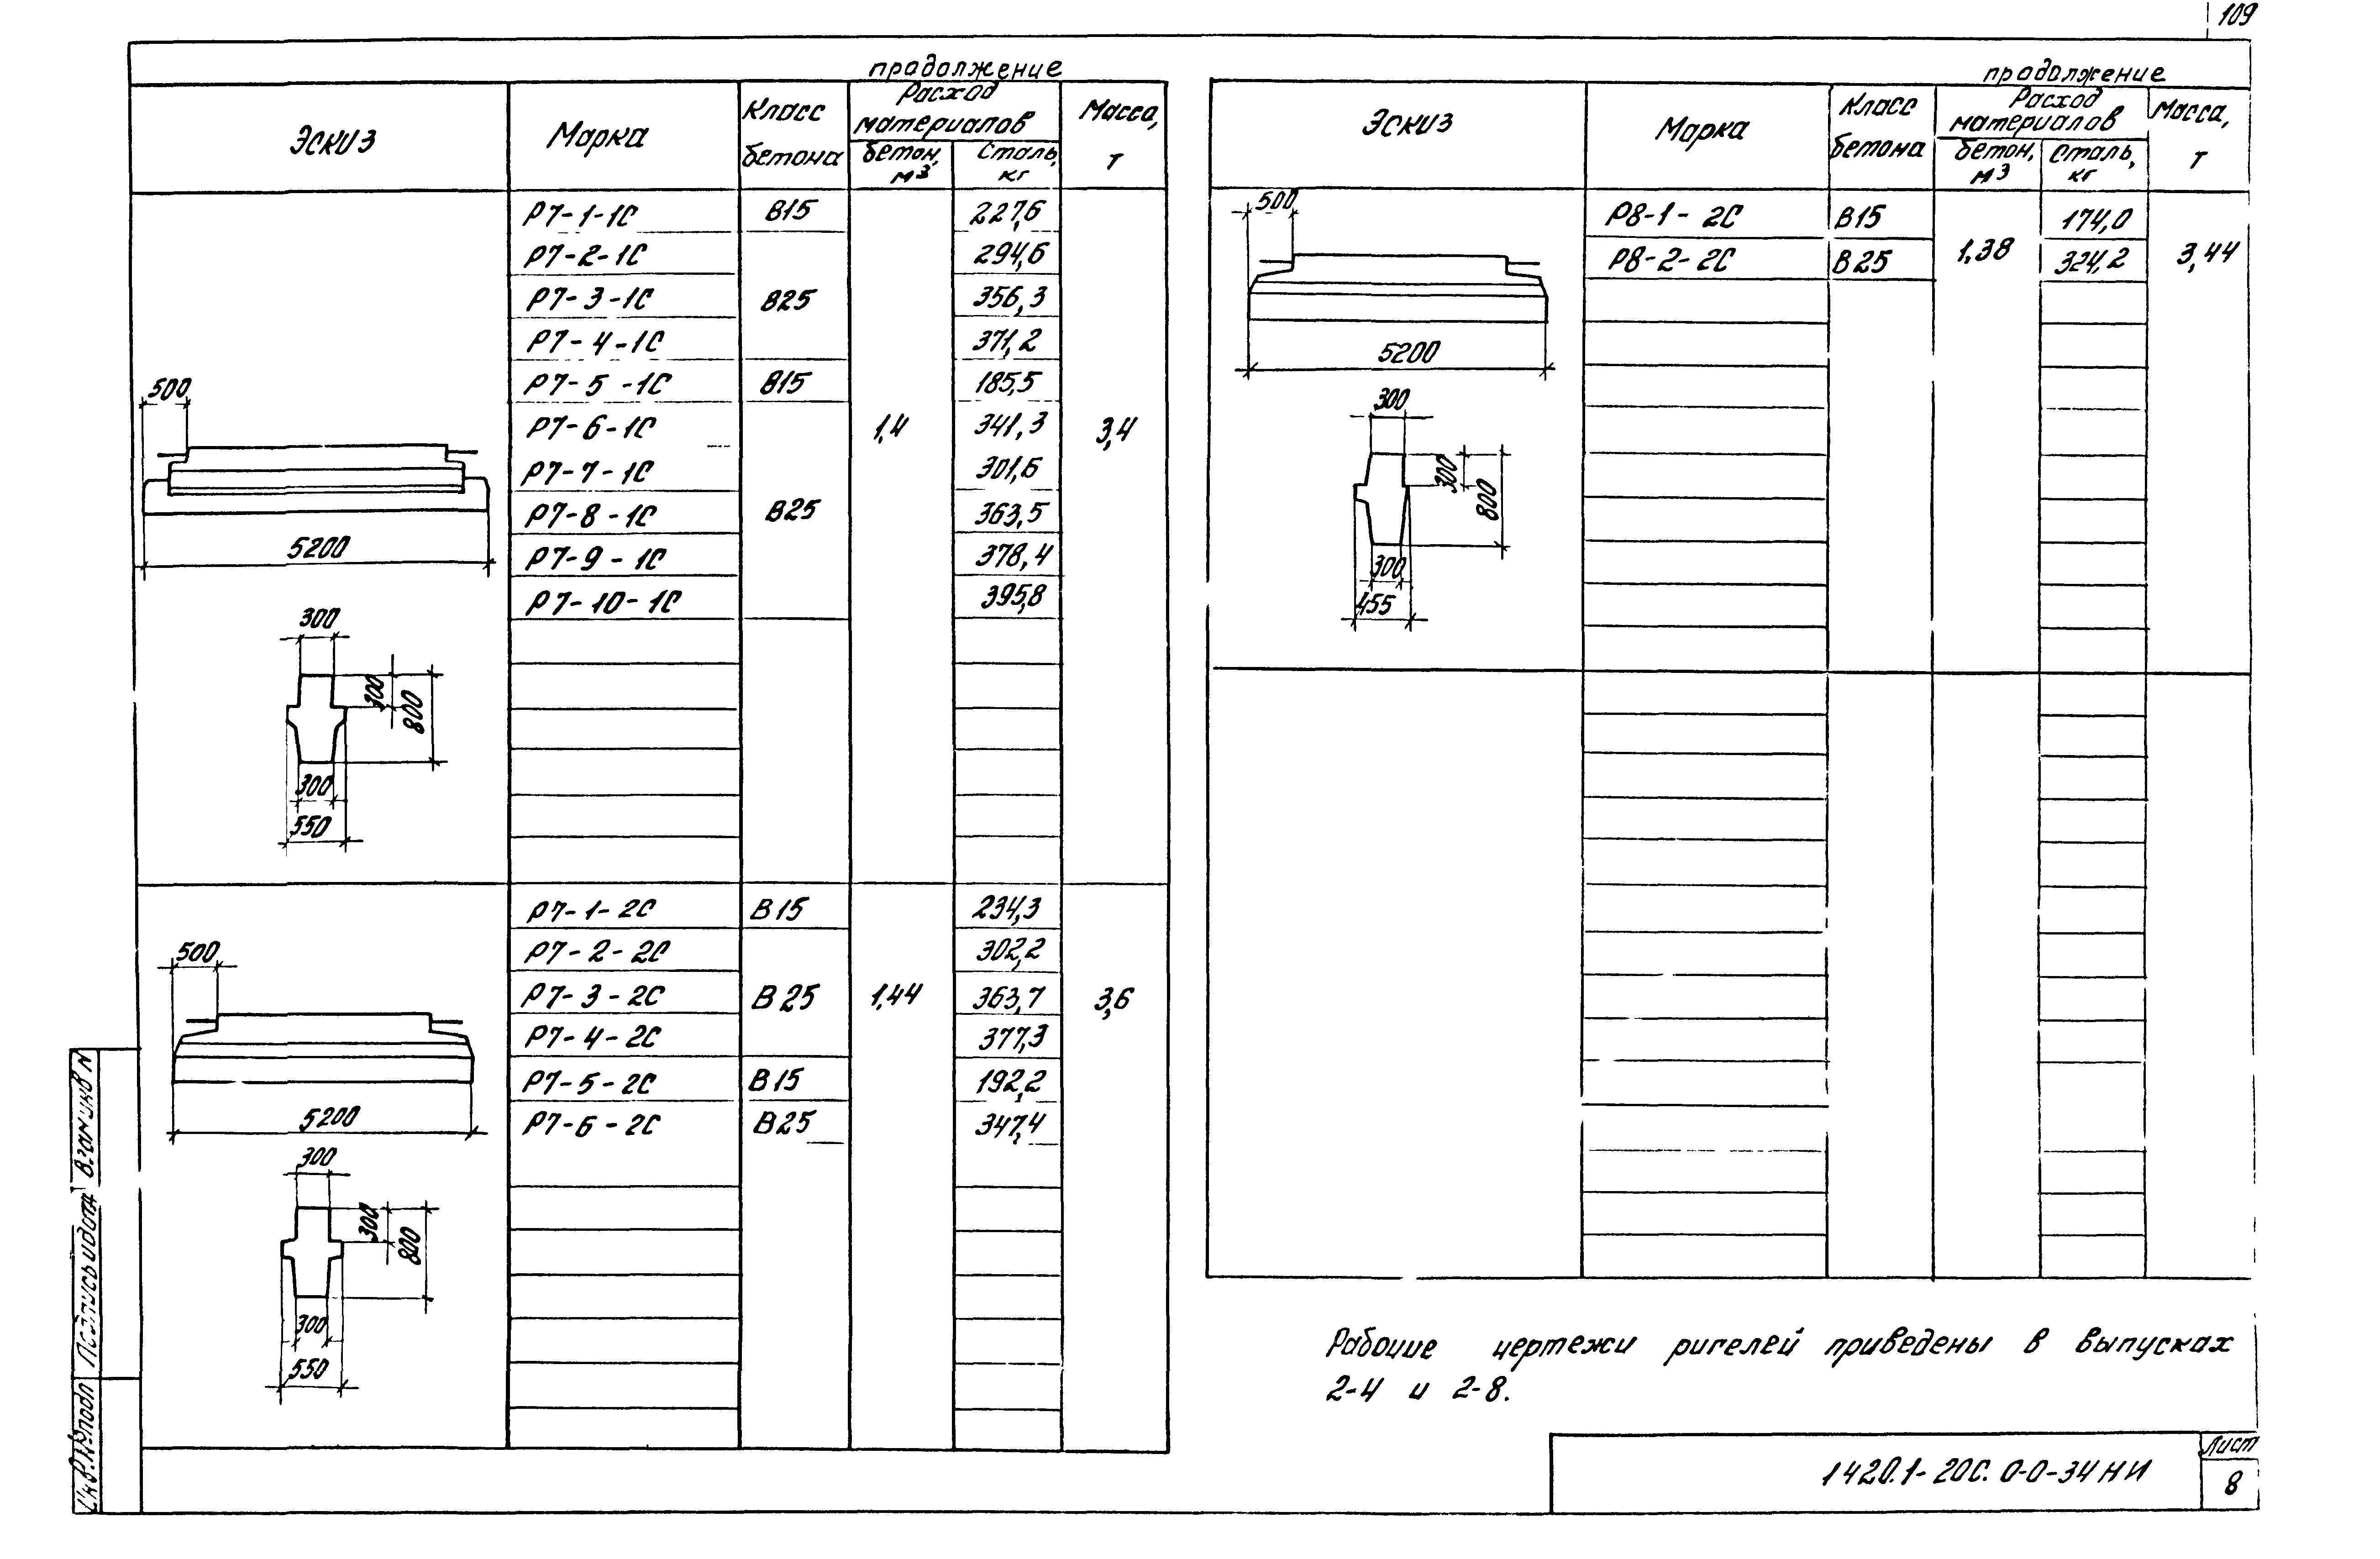 109
продолжение
Эскиз Марка Класс бетона Расход материалов Масса, т
бетон, м3 Сталь, кг
Р7-1-1С В15 227,6
Р7-2-1С 294,6
Р7-3-1С В25 356,3
Р7-4-1С 371,2
Р7-5-1С В15 185,5
Р7-6-1С 1,4 341,3 3,4
Р7-7-1С 301,6
Р7-8-1С В25 363,5
Р7-9-1С 378,4
Р7-10-1С 395,8
500
5200
300
300
800
300
550
Р7-1-2С В15 234,3
Р7-2-2С 302,2
Р7-3-2С В25 1,44 363,7 3,6
Р7-4-2С 377,3
Р7-5-2С В15 192,2
Р7-6-2С В25 347,4
500
5200
300
300
800
300
550
продолжение
Эскиз Марка Класс бетона Расход материалов Масса, т
бетон, м3 Сталь, кг
Р8-1-2С В15 174,0
Р8-2-2С В25 1,38 324,2 3,44
500
5200
300
300
800
300
455
Рабочие чертежи ригелей приведены в выпусках
2-4 и 2-8.
1420.1-20С.0-0-34НИ
Лист
8
Инв.№подл Подпись и дата Взам.инв N